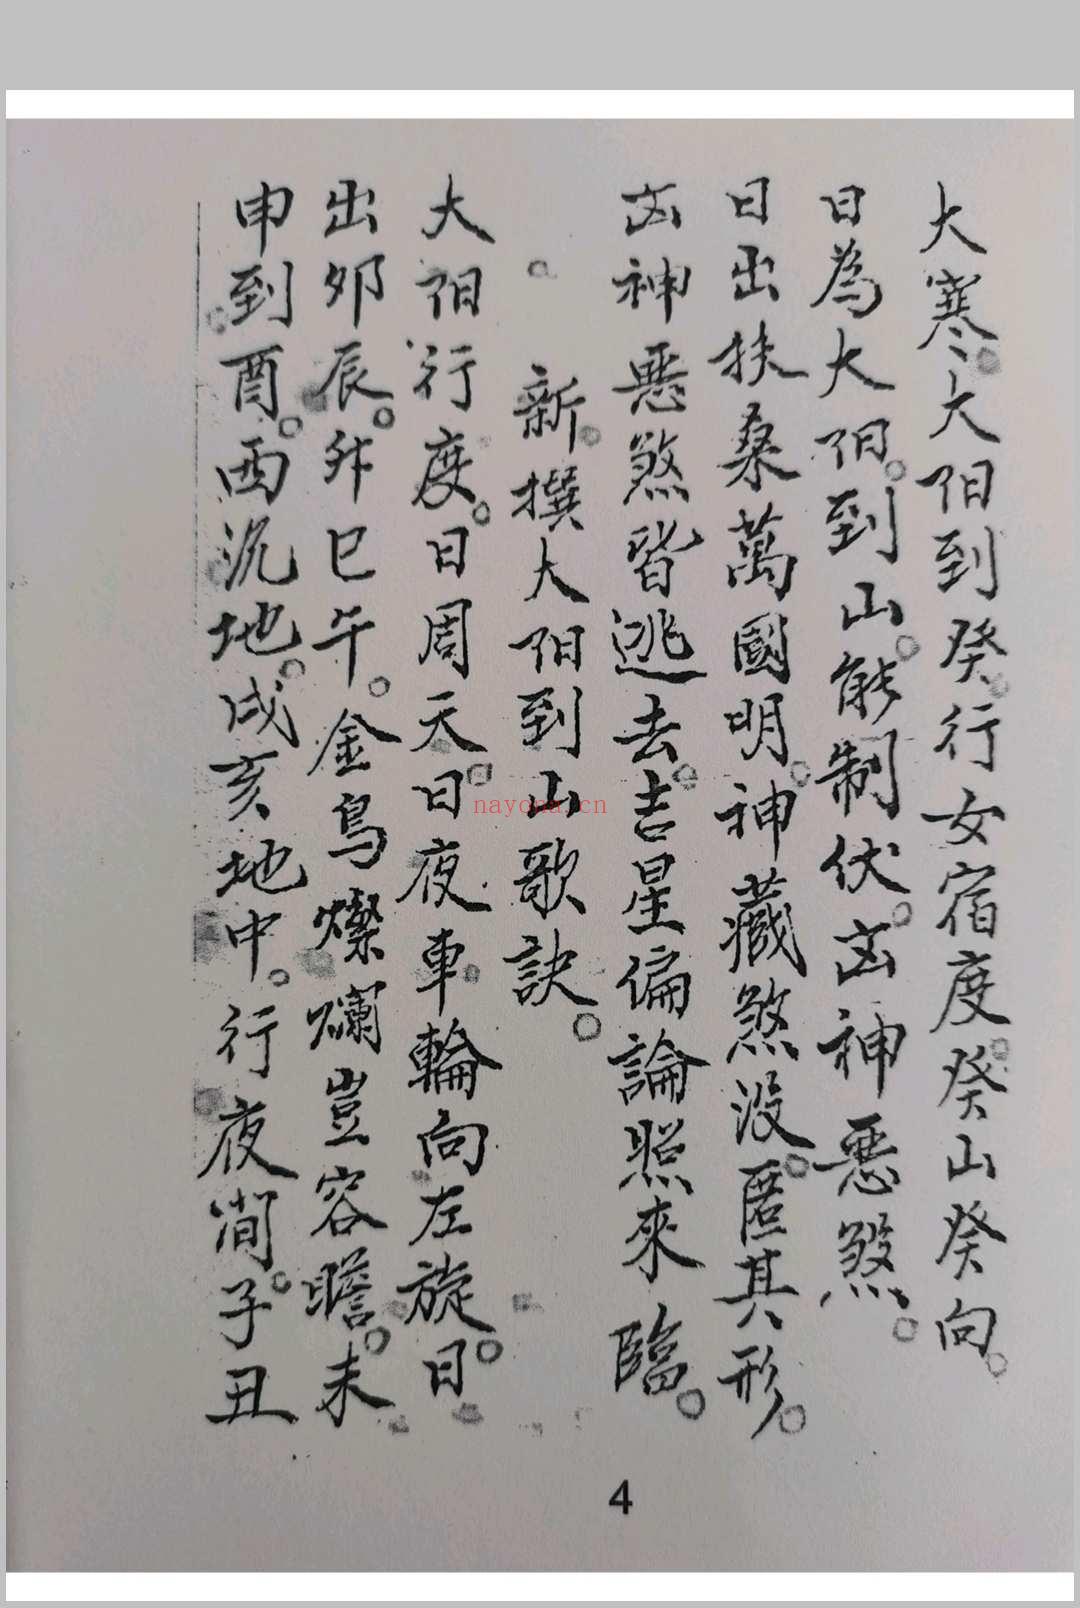 大寒。大阳到癸。行女宿度。癸山癸向。
日為大阳。到山。能制伏。凶神惡煞。
日出扶桑萬國明。神藏煞没。匿其形。
凶神惡煞皆逃去。吉星偏論照來臨。
新撰大阳到山歌訣。
大阳行度。日周天。日夜車輪向左旋。日
出夘辰。升巳午。金鳥燦爛豈容瞻。未
申到酉。西沉地。戌亥地中。行夜间。子丑
nayona.cn
4